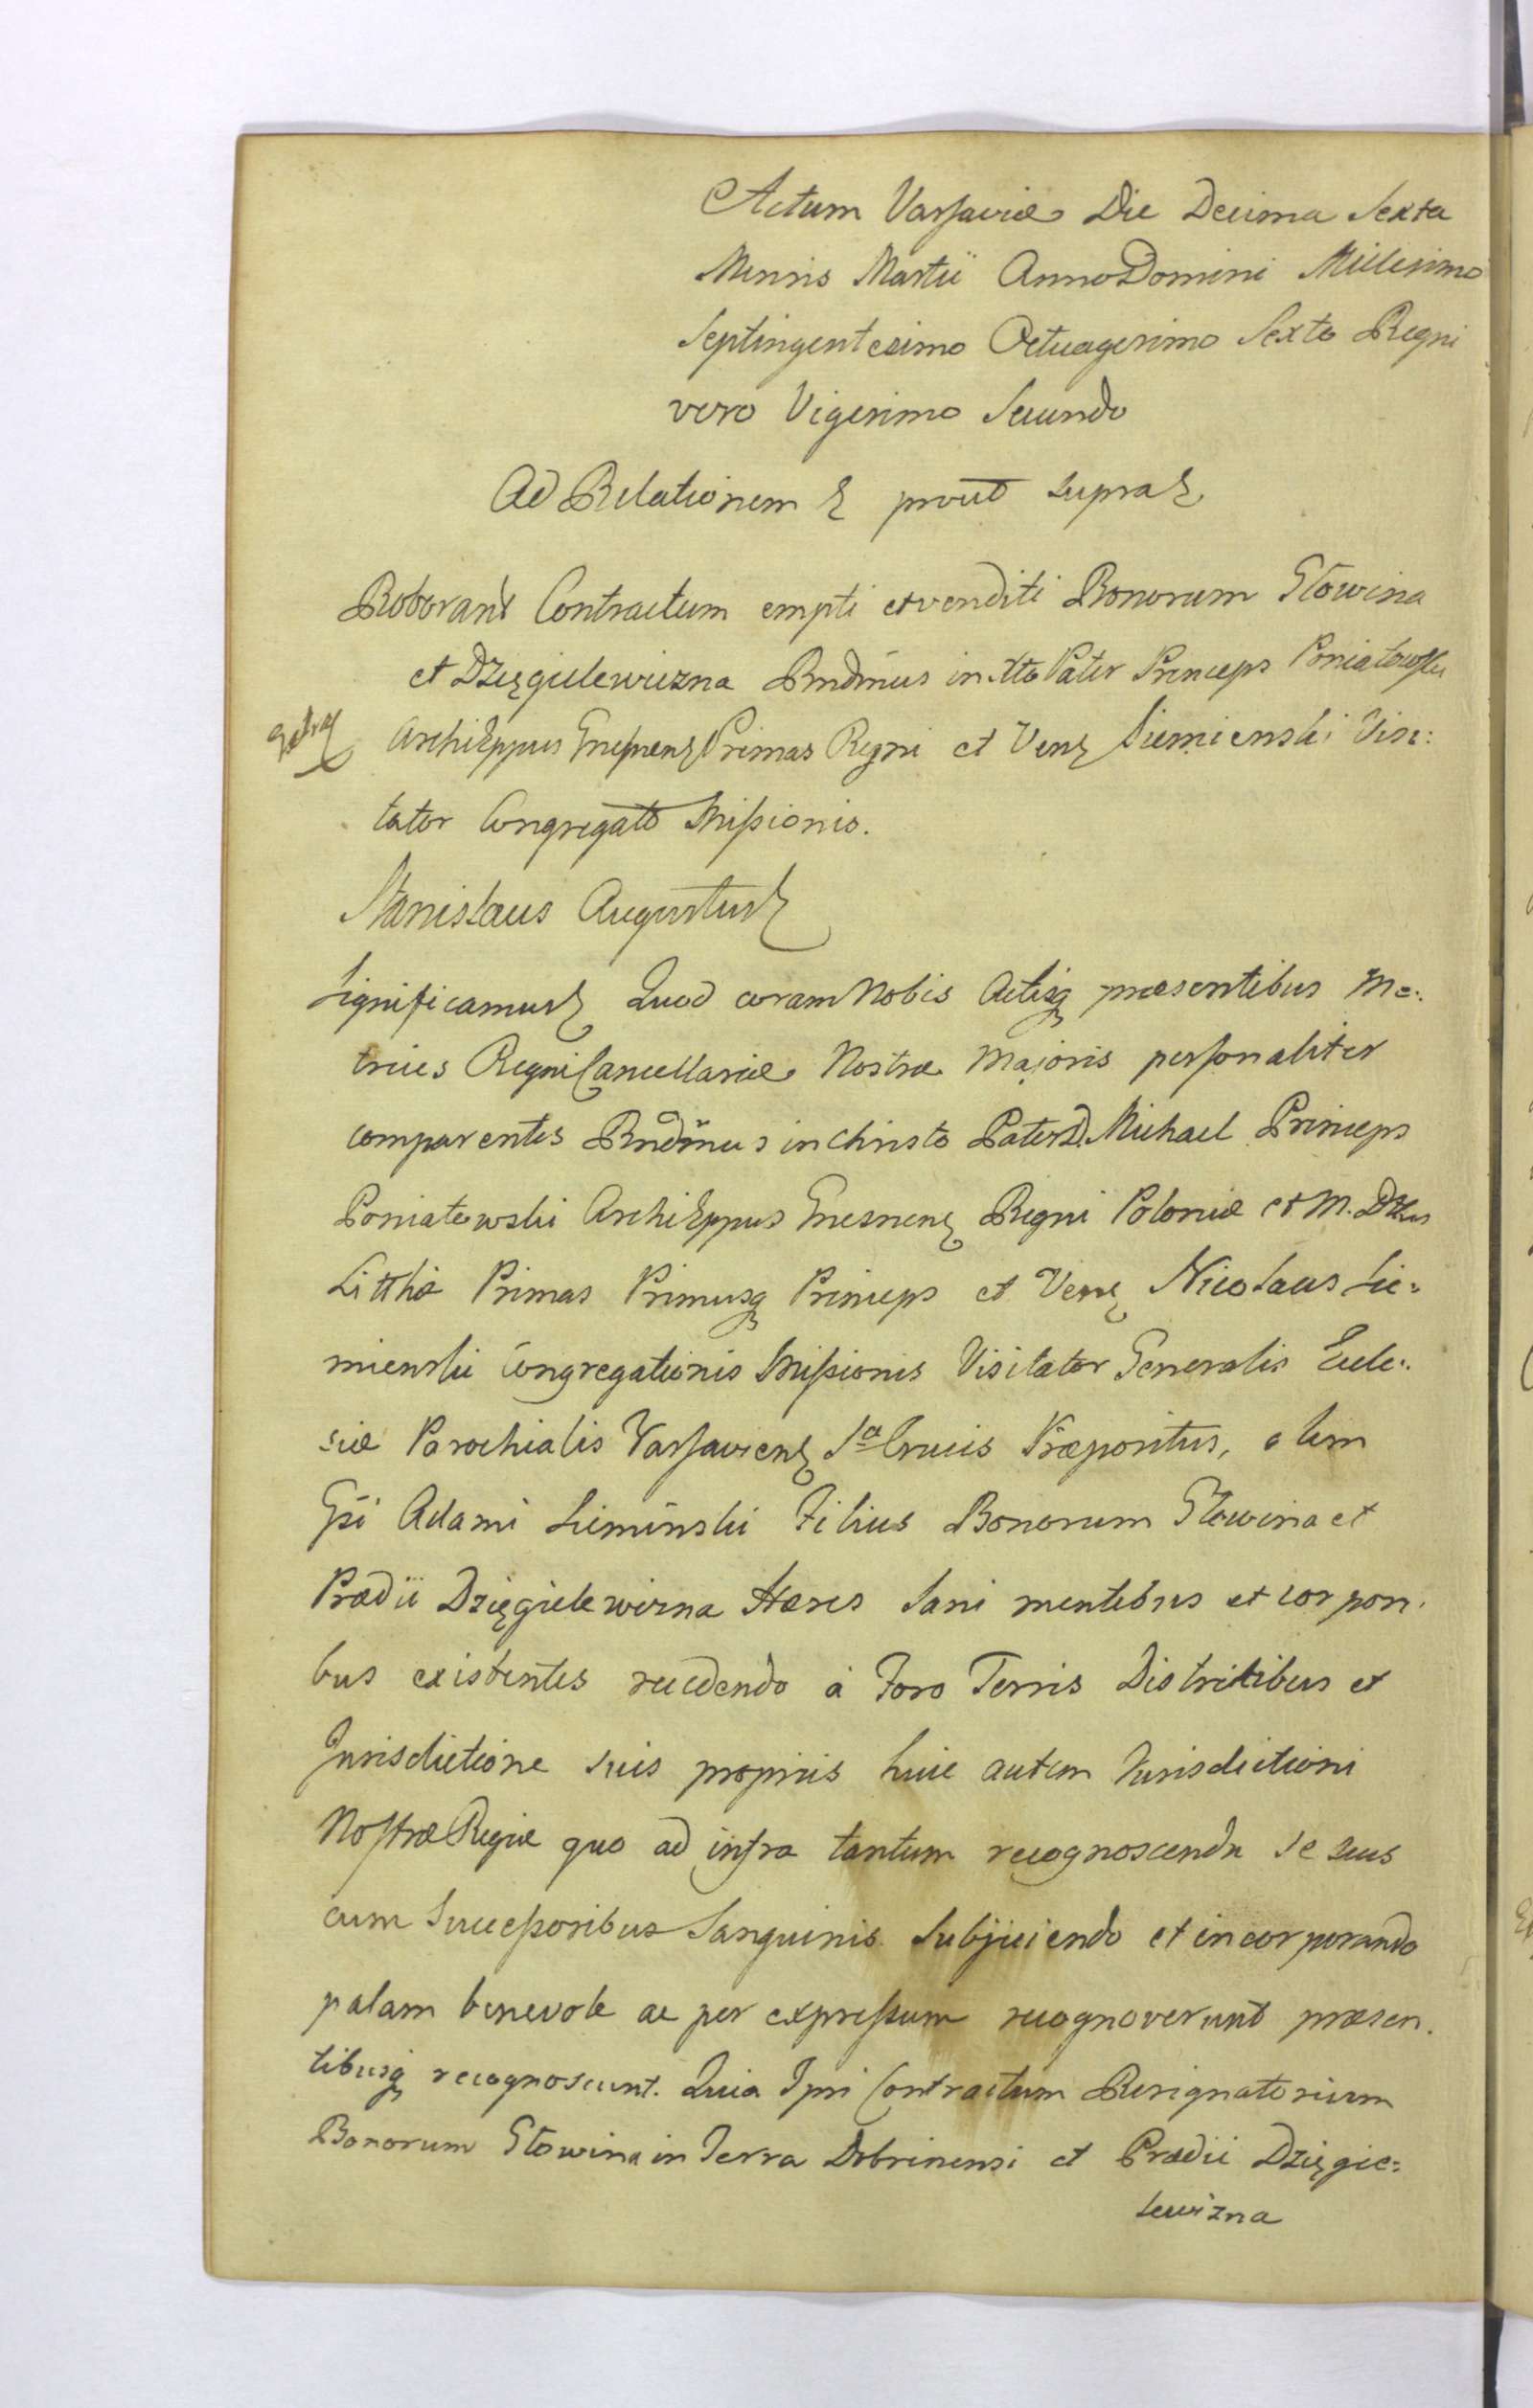 Actum Varsaviæ Die Decima Sexta
Mensis Martii Anno Domini Millesimo
Septingentesimo Octuagesimo Sexto Regni
vero Vigesimo Secundo
Ad Relationem & prout supra &
Roborant Contractum empti et venditi Bonorum Głowina
et Dzięgielewizna Rndmus in Xto Pater Princeps Poniatowski
ArchiEppus Gnesnens Primas Regni et Vens Siemienski Visi:
tator Congregatt Missionis.
Stanislaus Augustus &
Significamus & Quod coram Nobis Actisq præsentibus Me:
trices Regni Cancellariæ Nostræ Majoris personaliter
comparentes Rndmus in Christo Pater D. Michael Princeps
Poniatowski ArchiEppus Gnesnens Regni Poloniæ et M. Dtus
Litthæ Primas Primusq Princeps et Vens Nicolaus Sie:
mienski Congregationis Missionis Visitator Generalis Eccle:
siæ Parochialis Varsaviens Sæ Crucis Præpositus, olim
Gsi Adami Sieminski Filius Bonorum Głowina et
Prædii Dzięgielewizna Hæres Sani mentibus et corpori.
bus existentes recedendo à Foro Terris Districtibus et
Jurisdictione suis propriis huic autem Jurisdictioni
Nostræ Regiæ quo ad infra tantum recognoscenda se suos
cum Successoribus Sanguinis Subjiciendo et incorporando
palam benevole ac per expressum recognoverunt præsen.
tibusq recognoscunt. Quia Ipsi Contractum Resignatorium
Bonorum Głowina in Terra Dobrinensi et Prædii Dzięgie:
lewizna